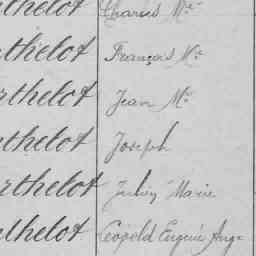 thelot Charles Me
rthelot François Me
rthelot Jean Me
rthelot Joseph
rthelot Julien Marie
rthelot Léopold Eugène Auge